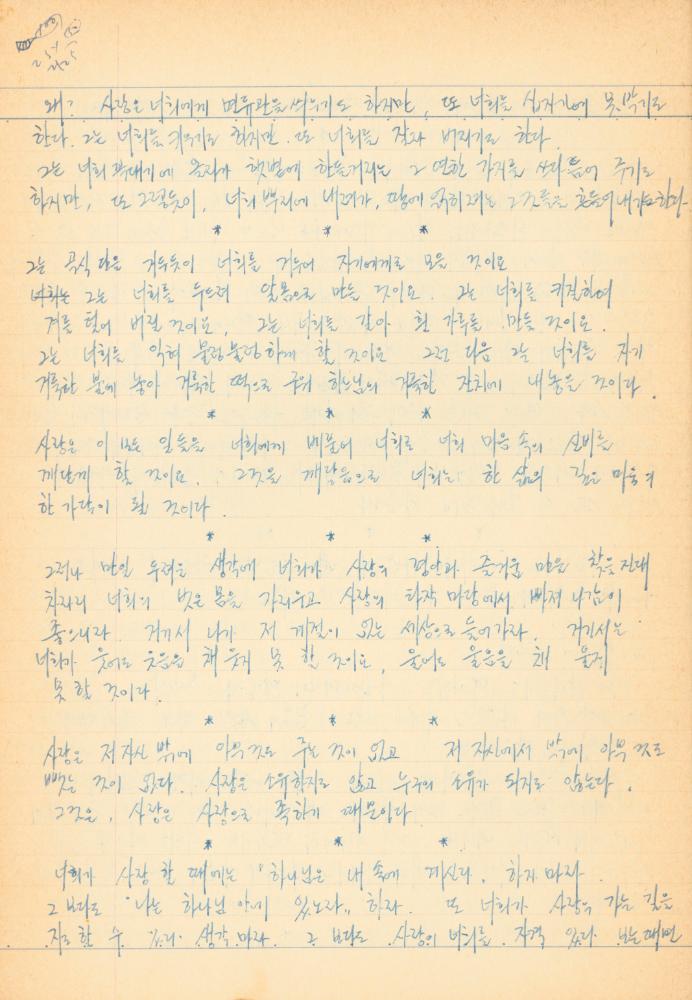 왜? 사랑은 너희에게 면류관을 씌우기도 하지만, 또 너희를 십자가에 못 박기도
한다. 그는 너희를 키우기도 하지만. 또 너희를 잘라 버리기도 한다.
그는 너희 꼭대기에 올라가 햇볕에 한들거리는 그 연한 가지를 쓰다듬어 주기도
하지만, 또 그렇듯이, 너희 뿌리에 내려가, 땅에 얽히려는 그것들을 흔들어 내기도 한다.
* * *
그는 곡식 단을 거두듯이 너희를 거두어 자기에게로 모을 것이요
그는 너희를 두드려 알몸으로 만들 것이요. 그는 너희를 키질하여
겨를 털어 버릴 것이요, 그는 너희를 갈아 흰 가루를 만들 것이요.
그는 너희를 익혀 물렁물렁하게 할 것이요 그런 다음 그는 너희를 자기
거룩한 불에 놓아 거룩한 떡으로 구워 하느님의 거룩한 잔치에 내놓을 것이다.
* * *
사랑은 이 모든 일들을 너희에게 베풀어 너희로 너희 마음 속의 신비를
깨닫게 할 것이요. 그것을 깨달음으로 너희는 한 삶의 깊은 마음의
한 가닥이 될 것이다.
* * *
그러나 만일 두려운 생각에 너희가 사랑의 평안과 즐거움 만을 찾을진대
차라리 너희의 벗은 몸을 가리우고 사랑의 타작 마당에서 빠져 나감이
좋으니라. 거기서 나가 저 계절이 없는 세상으로 들어가라. 거기서는
너희가 웃어도 웃음을 채 웃지 못 할 것이요, 울어도 울음을 채 울지
못 할 것이다.
* * *
사랑은 저 자신 밖에 아무 것도 주는 것이 없고 저 자신에서 밖에 아무 것도
뺏는 것이 없다. 사랑은 소유하지도 않고 누구의 소유가 되지도 않는다.
그것은, 사랑은 사랑으로 족하기 때문이다
* * *
너희가 사랑 할 때에는 "하나님은 내 속에 계신다. 하지 마라.
그 보다도 "나는 하나님 안에 있노라" 하라. 또 너희가 사랑의 가는 길을
지도 할 수 있다 생각 마라. 그 보다도 사랑이 너희를 자격 있다 보는 때면